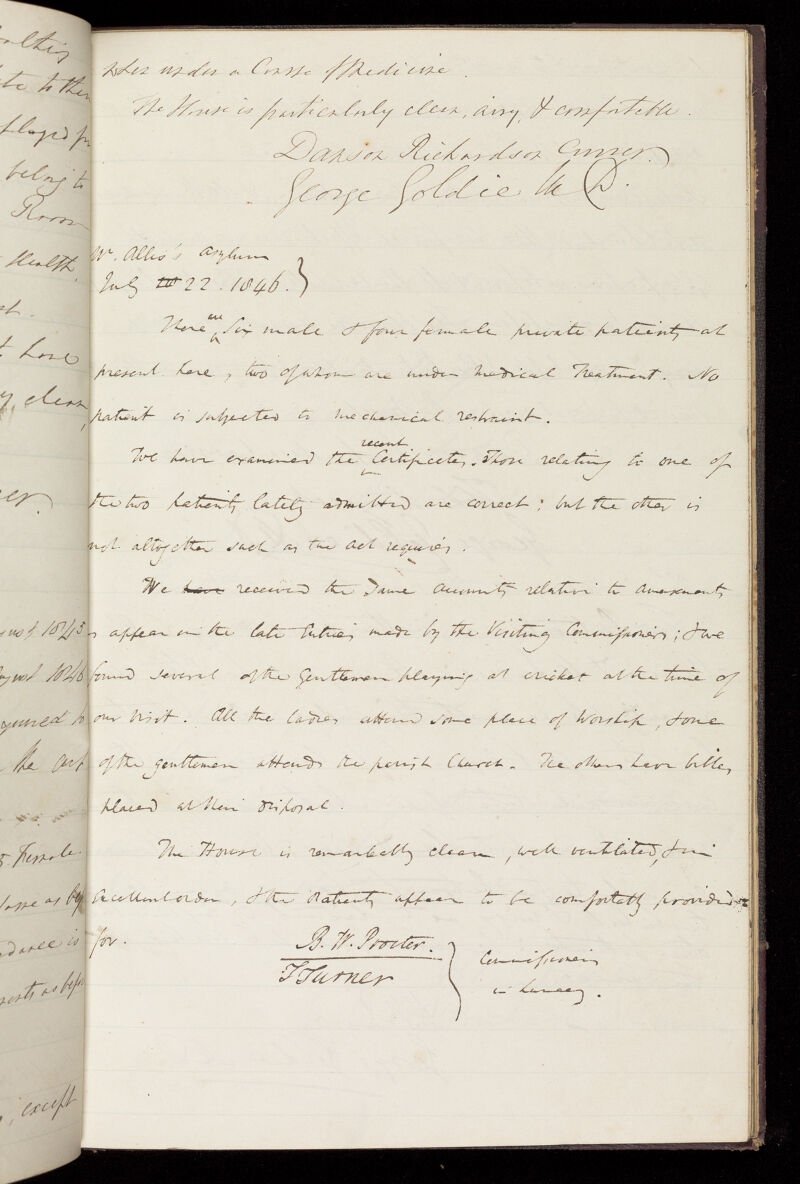 under a Course of Medicine.
The House is particularly clean, airy, & comfortable.
Danson Richardson Currer
George Goldie M.D.
Mr. Allis's Asylum
July 22. 1846.
There are Six male & four female private patients at
present here, two of whom are under medical Treatment. No
patient is subjected to mechanical restraint.
We have examined the recent Certificates. Those relating to one of
the two patients lately admitted are correct; but the other is
not altogether such as the Act requires.
We have received the same accounts relative to amusements
as appear in the late Entries made by the Visiting Commissioners; & we
found several of the Gentlemen playing at cricket at the time of
our visit. All the ladies attend some place of Worship, & one
of the gentlemen attends the parish Church. The others have bibles
placed at their disposal.
The House is remarkably clean, well ventilated, & in
excellent order, & the Patients appear to be comfortably provided
for.
B. W. Procter.
T Turner
Commissioners
in Lunacy.
ate to them
belong to
Room
Health
t have
y clean,
1843
August 1846
the Act
5 Female
, except